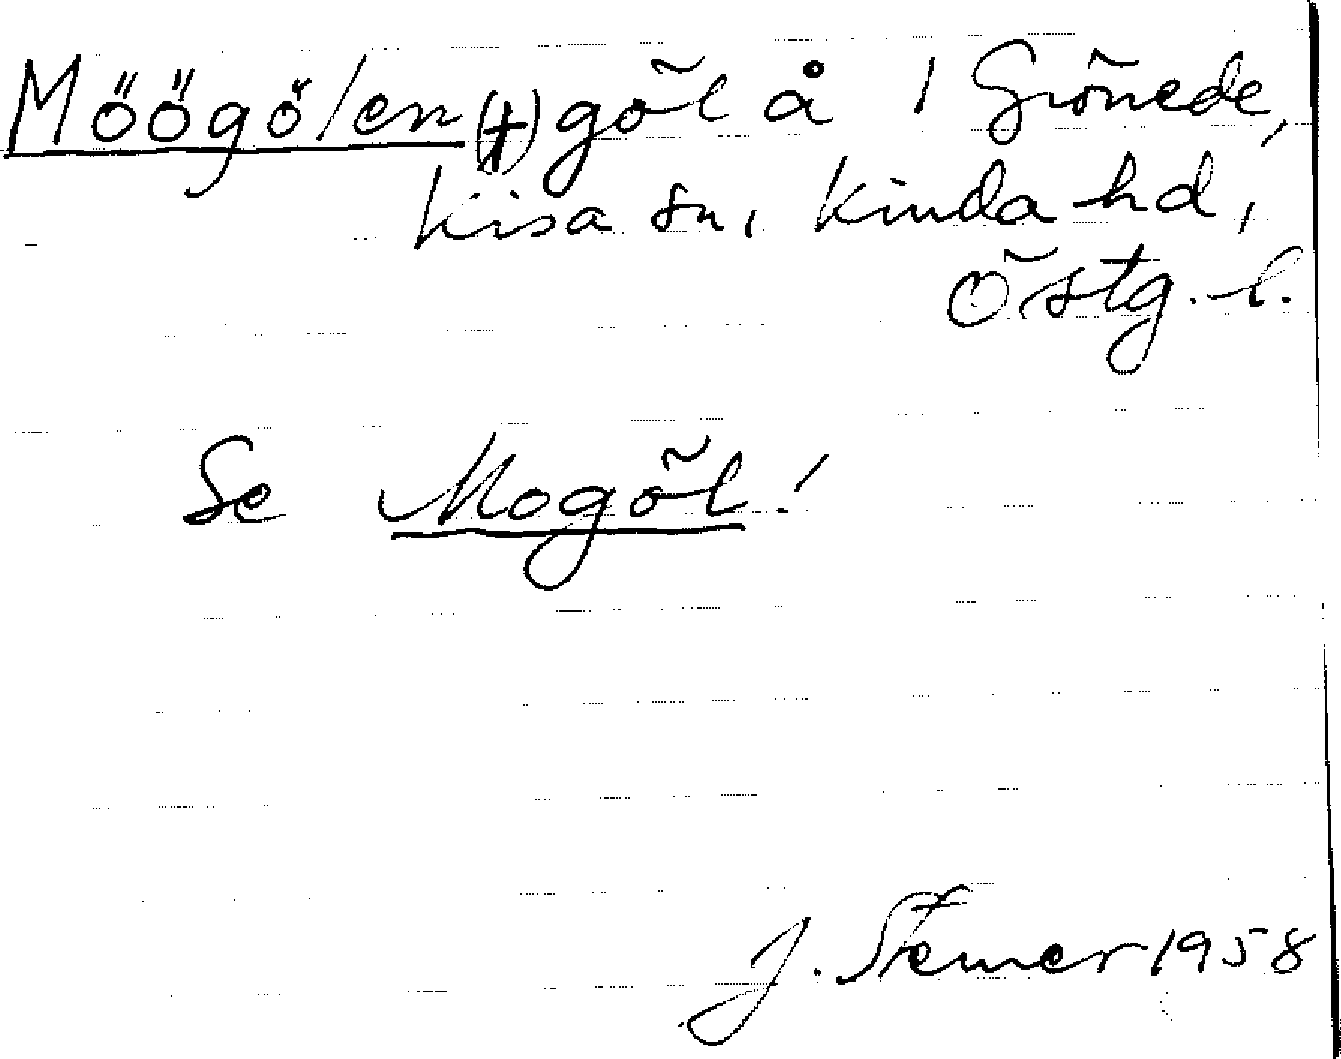 Möögölen (†) göl å 1 Grönede,
Kisa sn, Kinda hd,
Östg. l.
Se Mogöl!
J. Stemer 1958